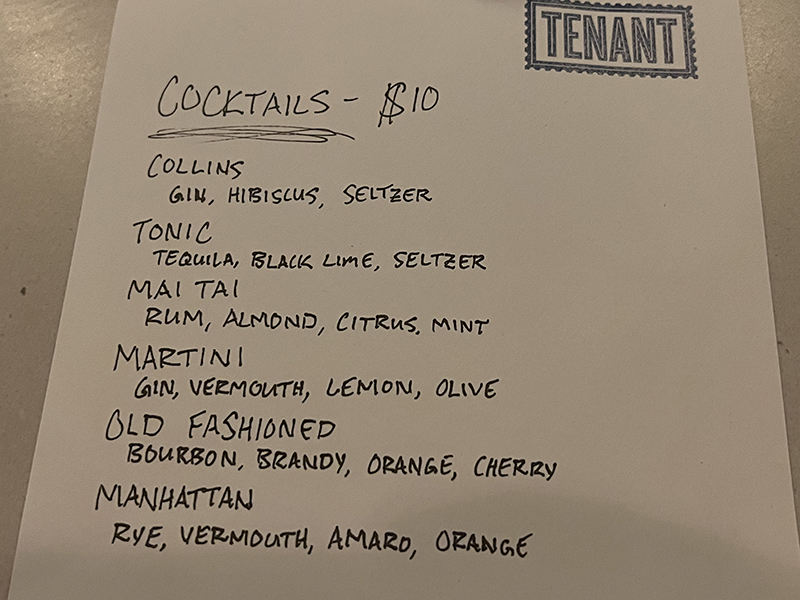 TENANT
COCKTAILS - $10
COLLINS
GIN, HIBISCUS, SELTZER
TONIC
TEQUILA, BLACK LIME, SELTZER
MAI TAI
RUM, ALMOND, CITRUS, MINT
MARTINI
GIN, VERMOUTH, LEMON, OLIVE
OLD FASHIONED
BOURBON, BRANDY, ORANGE, CHERRY
MANHATTAN
RYE, VERMOUTH, AMARO, ORANGE